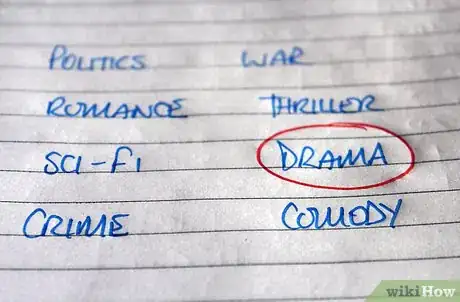 POLITICS WAR
ROMANCE THRILLER
SCI-FI DRAMA
CRIME COMODY
wikiHow